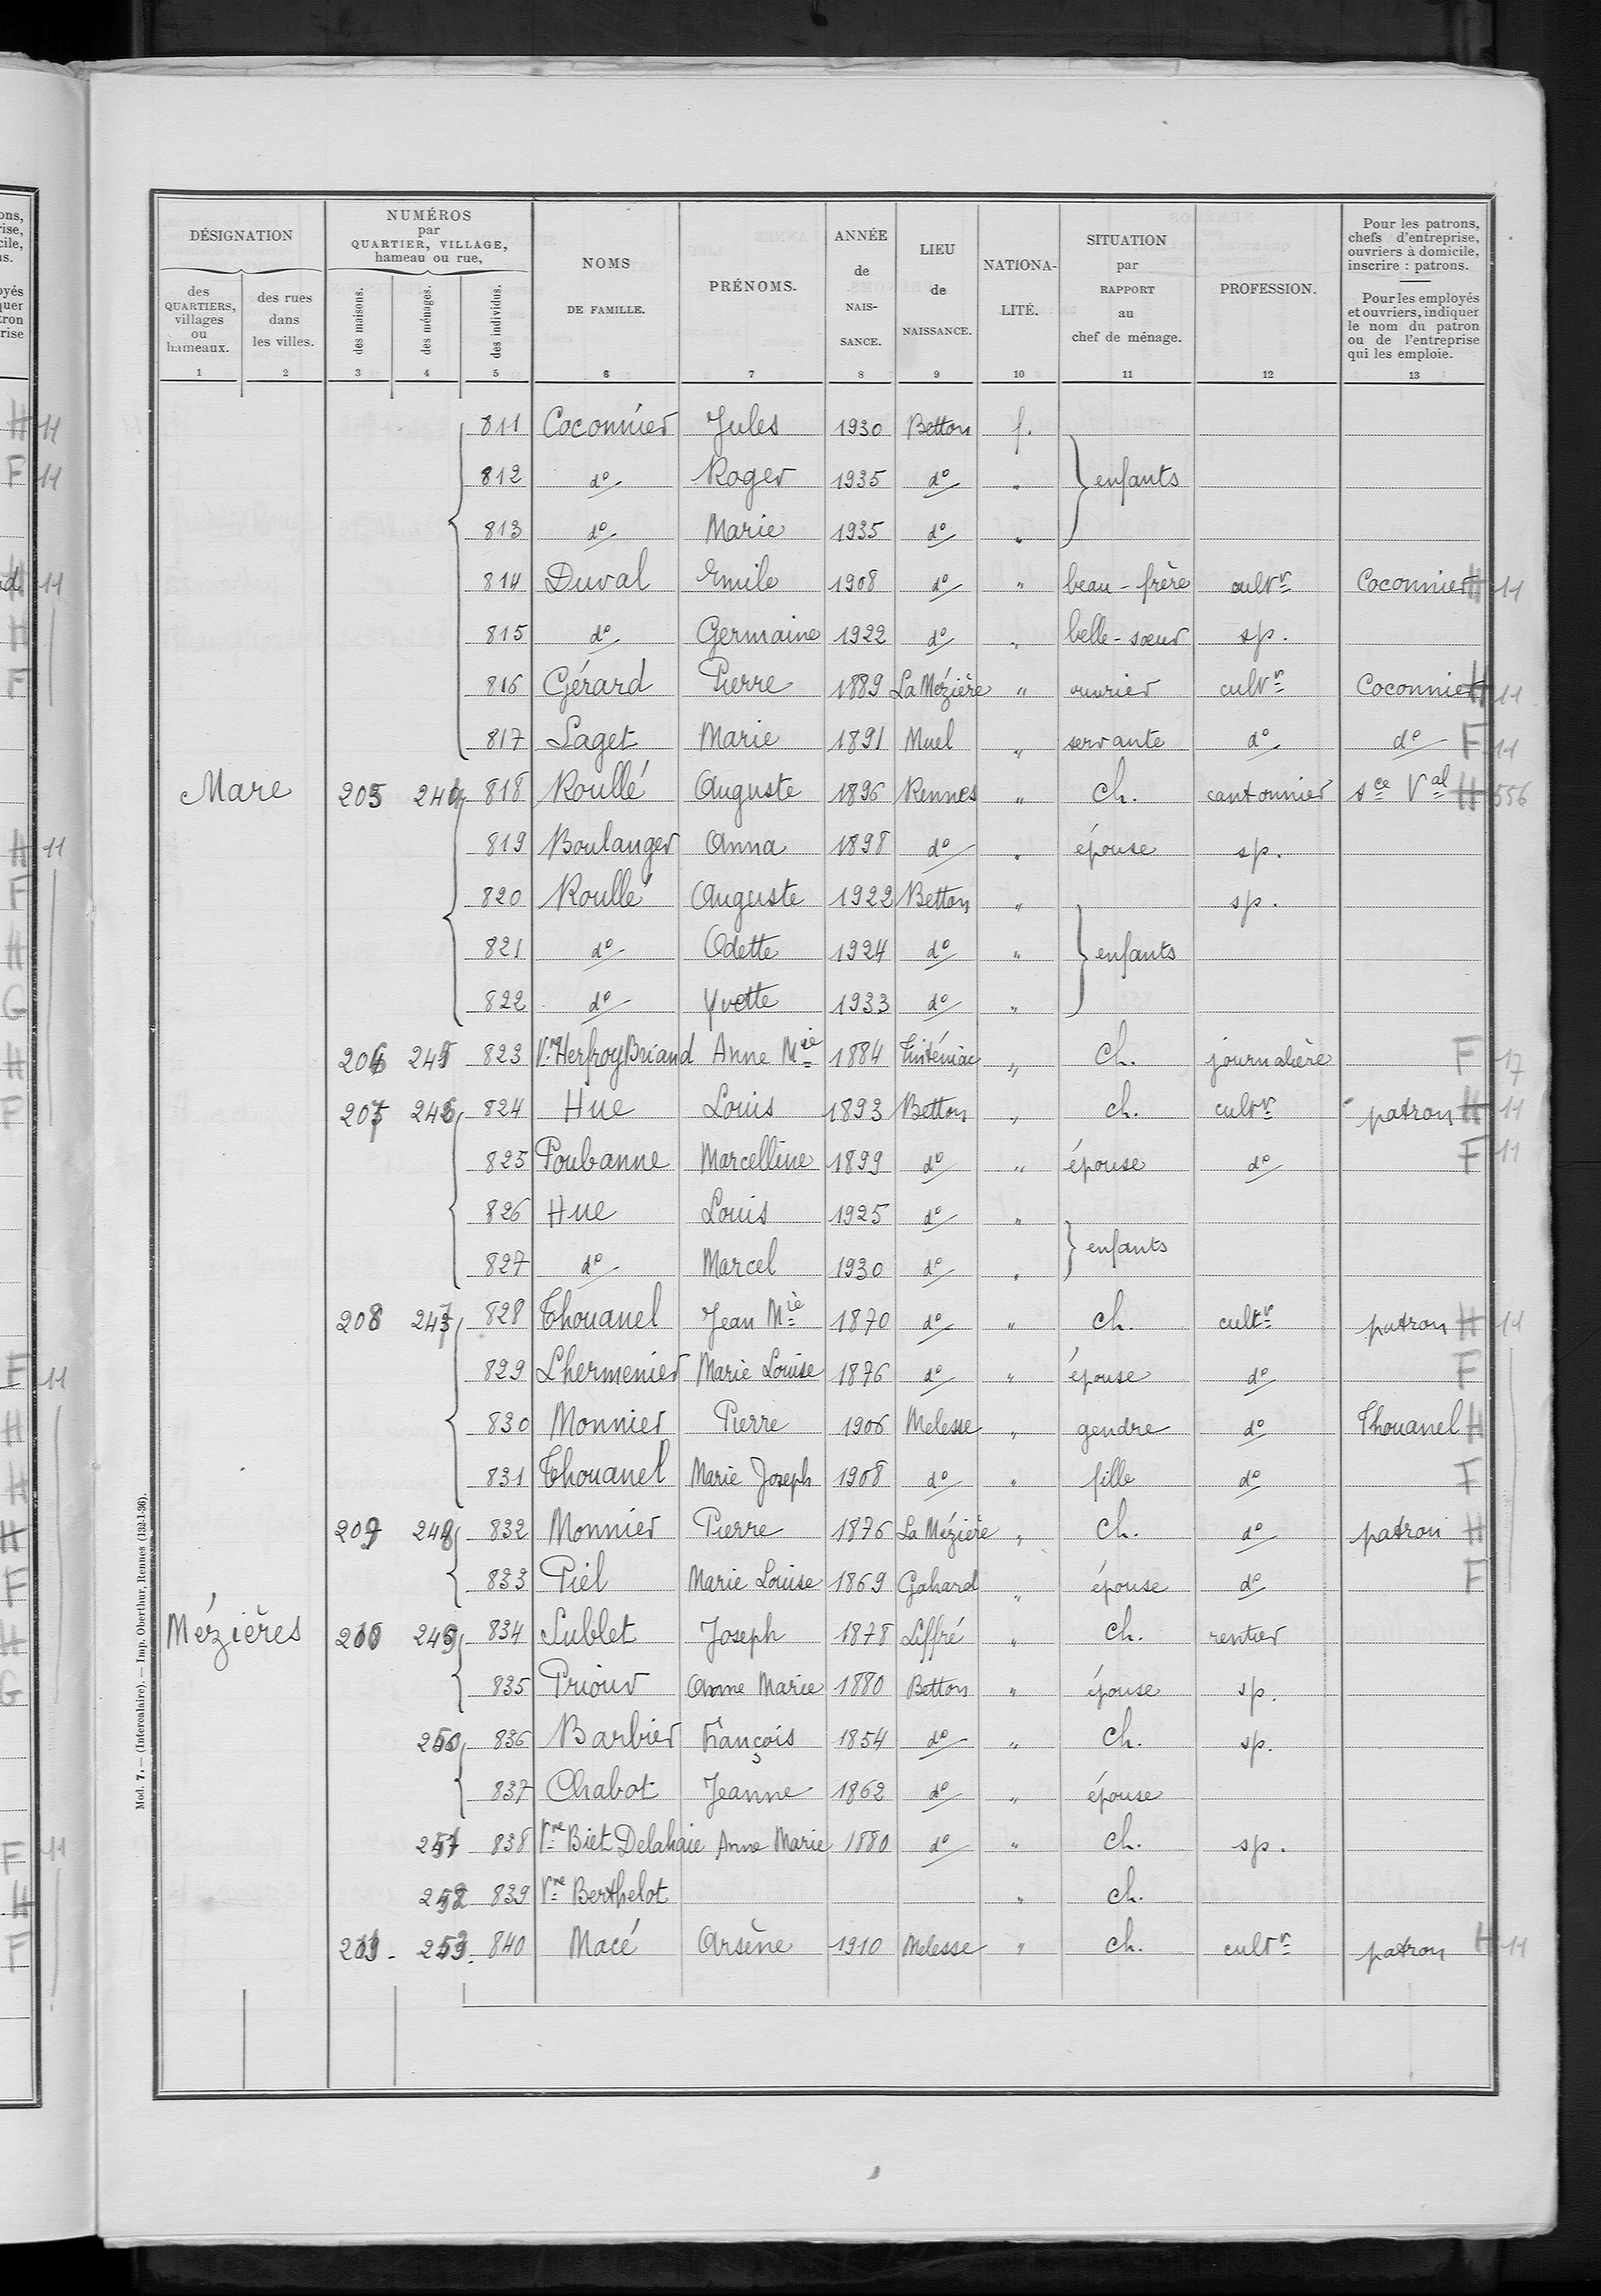 DÉSIGNATION
des QUARTIERS, villages ou hameaux.
des rues dans les villes.
NUMÉROS par QUARTIER, VILLAGE, hameau ou rue,
des maisons.
des ménages.
des individus.
NOMS DE FAMILLE.
PRÉNOMS.
ANNÉE de NAIS- SANCE.
LIEU de NAISSANCE.
NATIONA- LITÉ.
SITUATION par RAPPORT au chef de ménage.
PROFESSION.
Pour les patrons, chefs d'entreprise, ouvriers à domicile, inscrire : patrons.
Pour les employés et ouvriers, indiquer le nom du patron ou de l'entreprise qui les emploie.
1 2 3 4 5 6 7 8 9 10 11 12 13
811 Coconnier Jules 1930 Betton f.
812 do Roger 1935 do " enfants
813 do Marie 1935 do "
814 Duval Emile 1908 do " beau-frère cultr Coconnier H 11
815 do Germaine 1922 do " belle-sœur sp.
816 Gérard Pierre 1889 La Mézière " ouvrier cultr Coconnier H 11
817 Laget Marie 1891 Muel " servante do do F 11
Mare 205 244 818 Roullé Auguste 1896 Rennes " ch. cantonnier sce Val H 556
819 Boulanger Anna 1898 do " épouse sp.
820 Roullé Auguste 1922 Betton " sp.
821 do Odette 1924 do " enfants
822 do Yvette 1933 do "
206 245 823 Vve Herfroy Briand Anne Mie 1884 Tinténiac " ch. journalière F 17
207 246 824 Hue Louis 1893 Betton " ch. cultr patron H 11
825 Poubanne Marcelline 1899 do " épouse do F 11
826 Hue Louis 1925 do "
enfants
827 do Marcel 1930 do "
208 247 828 Thouanel Jean Mie 1870 do " ch. cultr patron H 11
829 Lhermenier Marie Louise 1876 do " épouse do F
830 Monnier Pierre 1906 Melesse " gendre do Thouanel H
831 Thouanel Marie Joseph 1908 do " fille do F
209 248 832 Monnier Pierre 1876 La Mézière " ch. do patron H
833 Piel Marie Louise 1869 Gahard " épouse do F
Mézières 210 249 834 Sublet Joseph 1878 Liffré " ch. rentier
835 Priour Anne Marie 1880 Betton " épouse sp.
250 836 Barbier François 1854 do " ch. sp.
837 Chabot Jeanne 1862 do " épouse
251 838 Vve Biet Delahaie Anne Marie 1880 do " ch. sp.
252 839 Vve Berthelot " ch.
253 840 Macé Arsène 1910 Melesse " ch. cultr patron H 11
Mod. 7. — (Intercalaire). — Imp. Oberthur, Rennes (132-1-36).